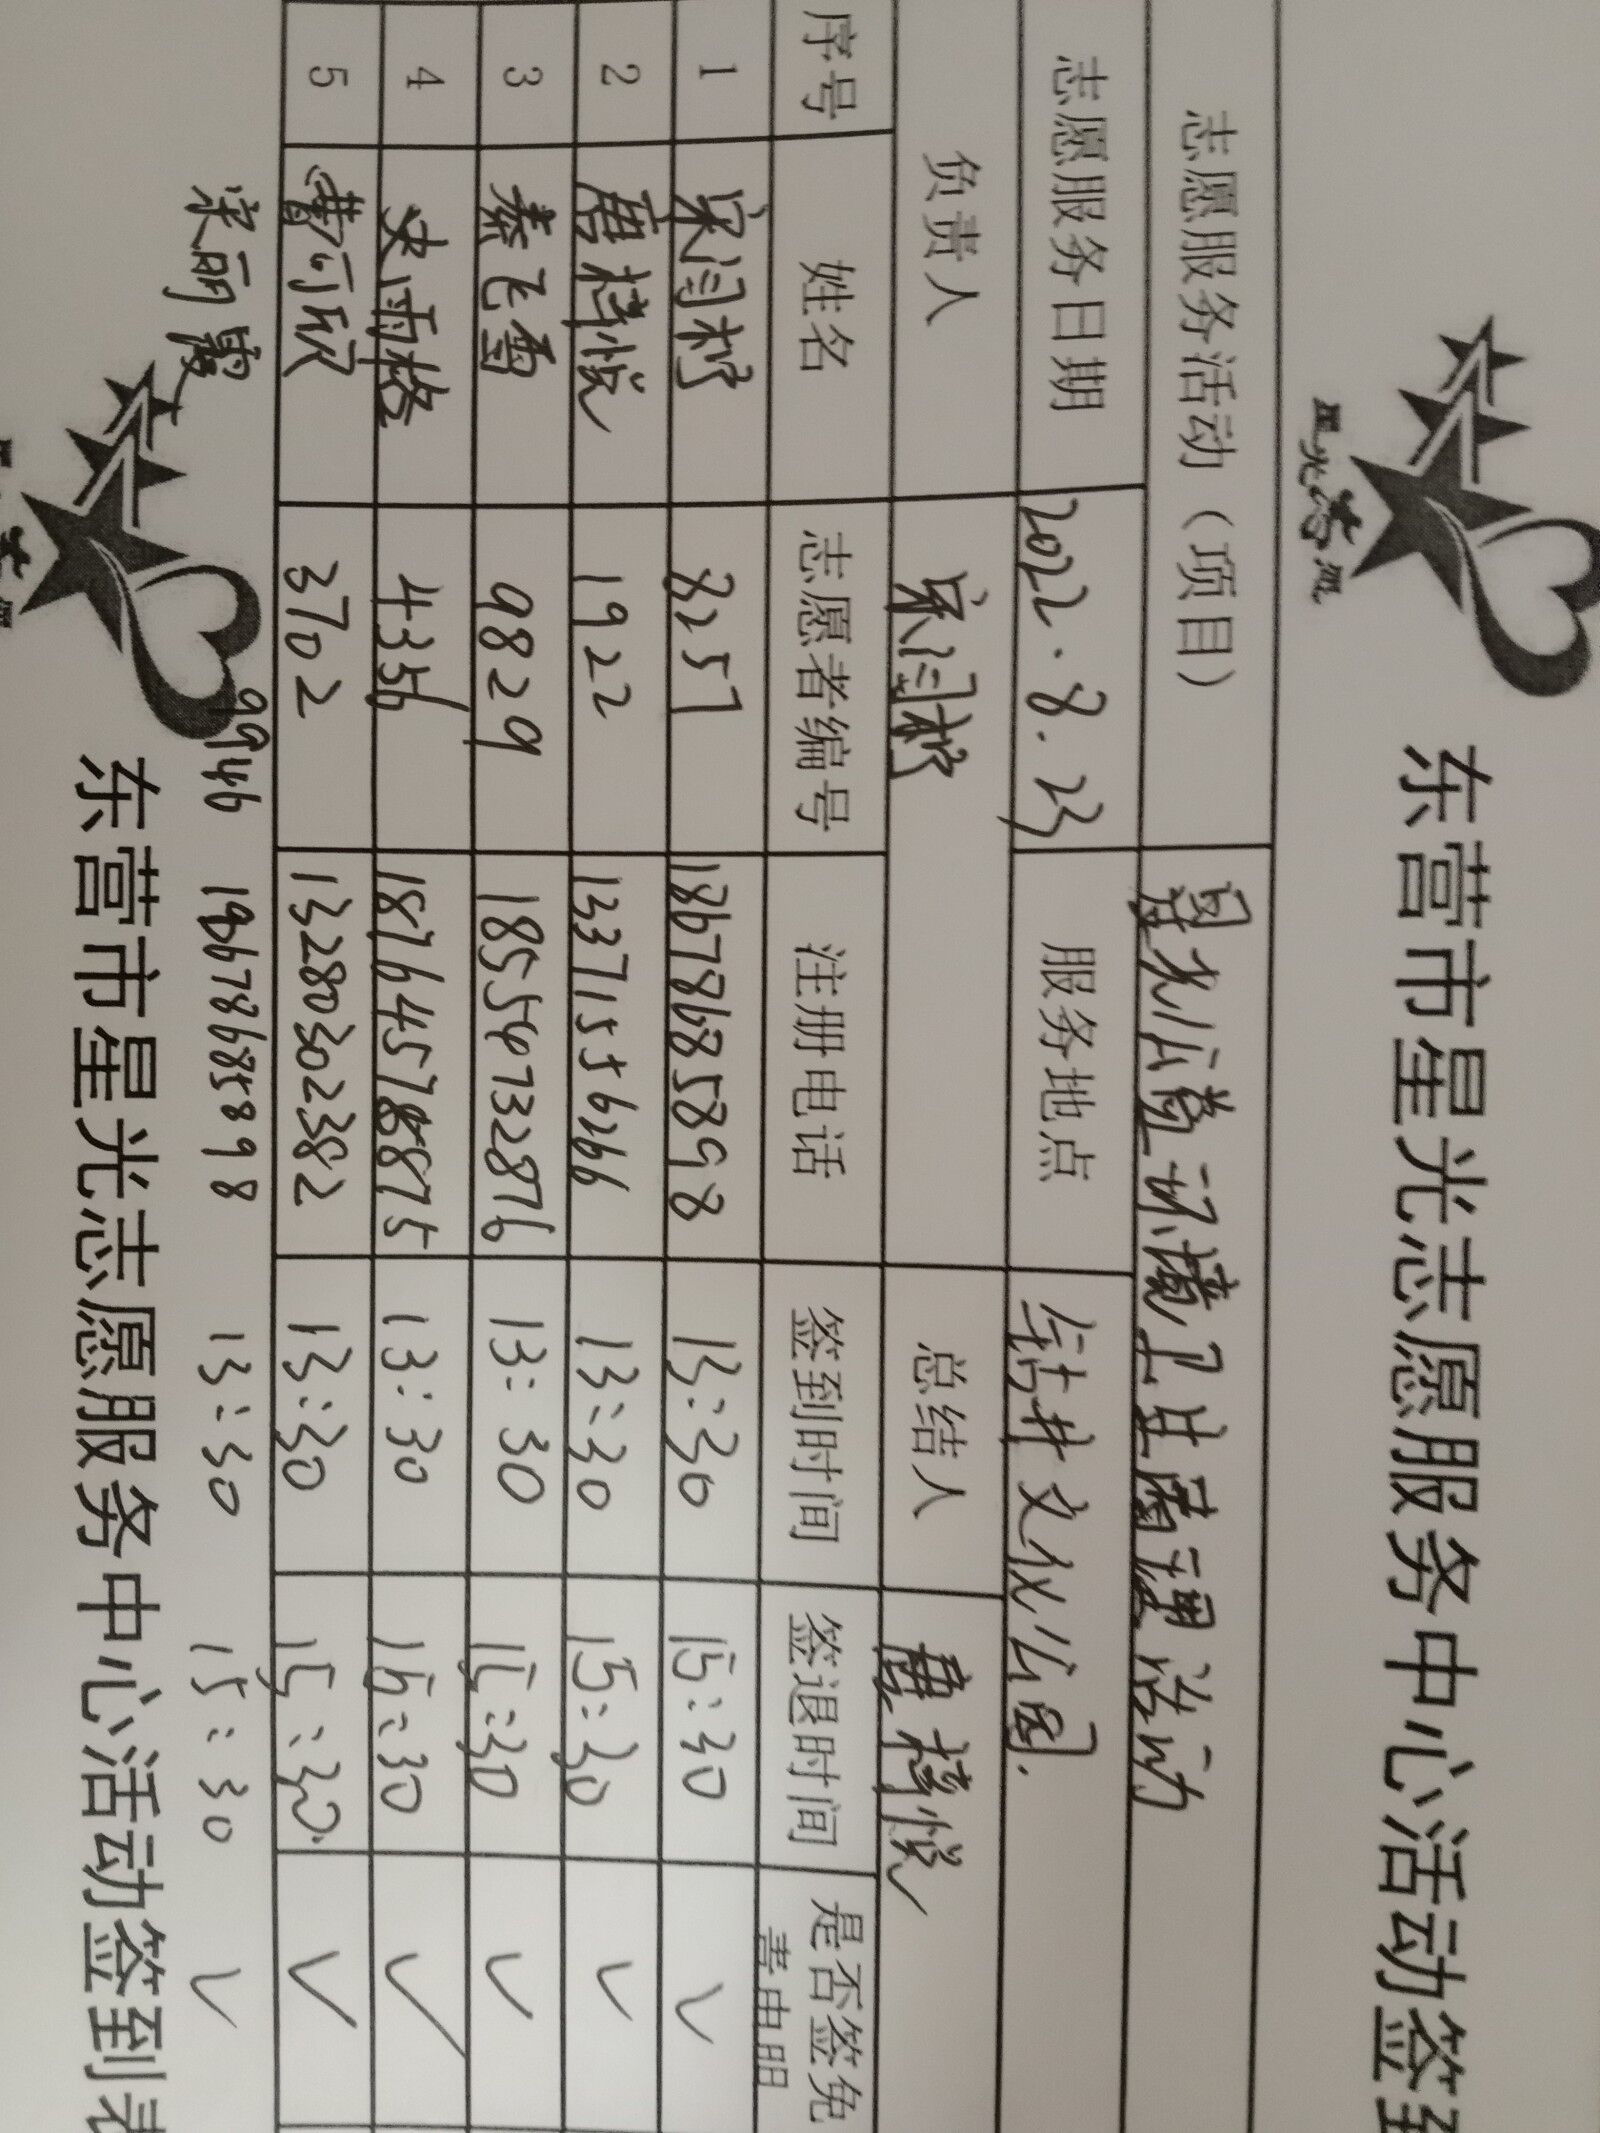 东营市星光志愿服务中心活动签到
星光志愿
志愿服务活动（项目） 星光公益环境卫生清理活动
志愿服务日期 2022.8.23 服务地点
负责人 总结人
序号 姓名 志愿者编号 注册电话 签到时间 签退时间 是否签免责申明
1 8257 18678685898 13:30 15:30 ✓
2 1922 13:30 15:30 ✓
3 秦飞雪 9829 13:30 15:30 ✓
4 史雨格 4356 18764578875 13:30 15:30 ✓
5 曹可欣 3702 13280302382 13:30 15:30 ✓
9946 13:30 15:30 ✓
东营市星光志愿服务中心活动签到表